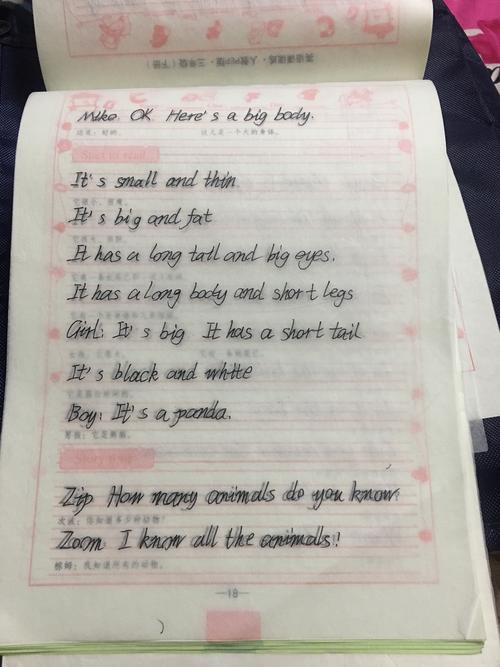 Mike OK Here's a big body.
迈克：好的。 这儿是一个大的身体。
Start to read
It's small and thin
It's big and fat
It has a long tail and big eyes.
It has a long body and short legs
Girl: It's big It has a short tail
It's black and white
Boy: It's a panda.
男孩：它是熊猫。
Story time
Zip How many animals do you know
次波：你知道多少种动物？
Zoom I know all the animals!
棕姆：我知道所有的动物。
—18—